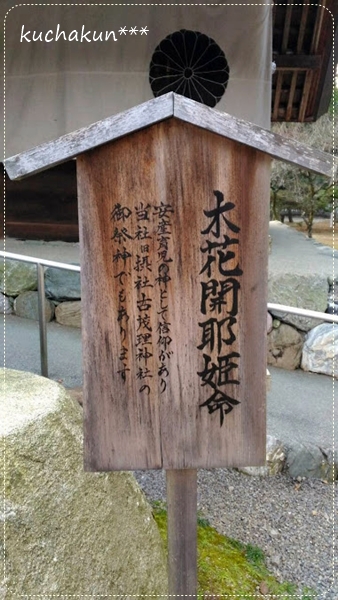 kuchakun***
木花開耶姫命
安産育児の神として信仰があり
当社旧摂社古茂理神社の
御祭神でもあります